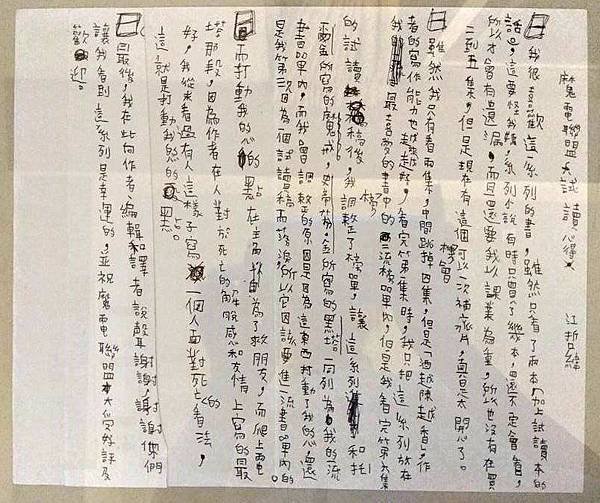 魔電聯盟大試讀心得 江折綿
我很喜歡這一系列的書,雖然只有了兩本加上試讀本的
話,這要怪我,系列小說有時只會了幾本,還不定會看,
所以才會有遺漏,而且還要我以課業為重,所以也沒有在買
二到五集,但是現在有這個可以一次補齊的機會,真是太開心了。
雖然我只有看兩集,中間跳掉四集,但是「酒越陳越香」,作
者的寫作能力也越來越好,看完第一集時,我只把這一系列放在
我的最喜愛的書中的二流櫃內,但是我看完第六集
的試讀稿後,我調整了櫃,讓這系列和托
爾金所寫的魔戒,史帝芬.金所寫的黑塔一同列為我的一流
書單內,而我會調整的原因是因為這東西打動了我的心,這
是我第一次因為一個試讀稿而落淚,所以它因該要進一流書單內的。
而打動我的心的點在主角因為了救朋友,而爬上電
塔那段,因為作者在人對於死亡的解脫感和友情上寫的最
好,我從來看過有人這樣子寫一個人面對死的看法,
這就是打動我的心的點。
最後,我在此向作者、編輯和譯者說聲謝謝,謝謝你們
讓我看到這系列是幸運的,並祝魔電聯盟大受好評及
歡迎。